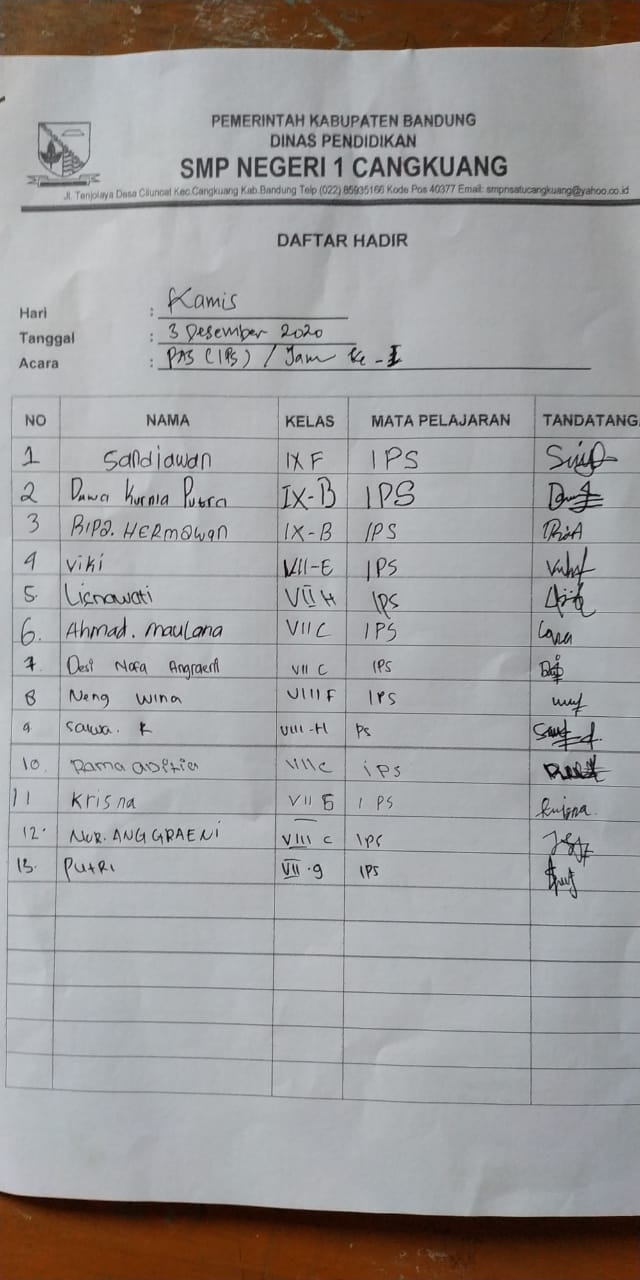 PEMERINTAH KABUPATEN BANDUNG
DINAS PENDIDIKAN
SMP NEGERI 1 CANGKUANG
Jl. Tenjolaya Desa Ciluncat Kec.Cangkuang Kab.Bandung Telp (022) 85935166 Kode Pos 40377 Email: smpnsatucangkuang@yahoo.co.id
DAFTAR HADIR
Hari : Kamis
Tanggal : 3 Desember 2020
Acara : PAS (IPS) / Jam ke - I
NO NAMA KELAS MATA PELAJARAN TANDATANGA
1 Sandiawan IX F IPS
2 Dawa Kurnia Putra IX-B IPS
3 Ripa. HERmawan IX-B IPS
4 Viki VII-E IPS
5. Lisnawati VII H IPS
6. Ahmad. Maulana VII C IPS
7. Desi Nofa Angraeni VII C IPS
8 Neng Wina VIIII F IPS
9 Salwa. K VIII-H PS
10. Rama VIIC iPS
11 Krisna VII IPS Krisna
12. NUR. ANGGRAENI VIII C IPS
13. PUTRI VII.g IPS